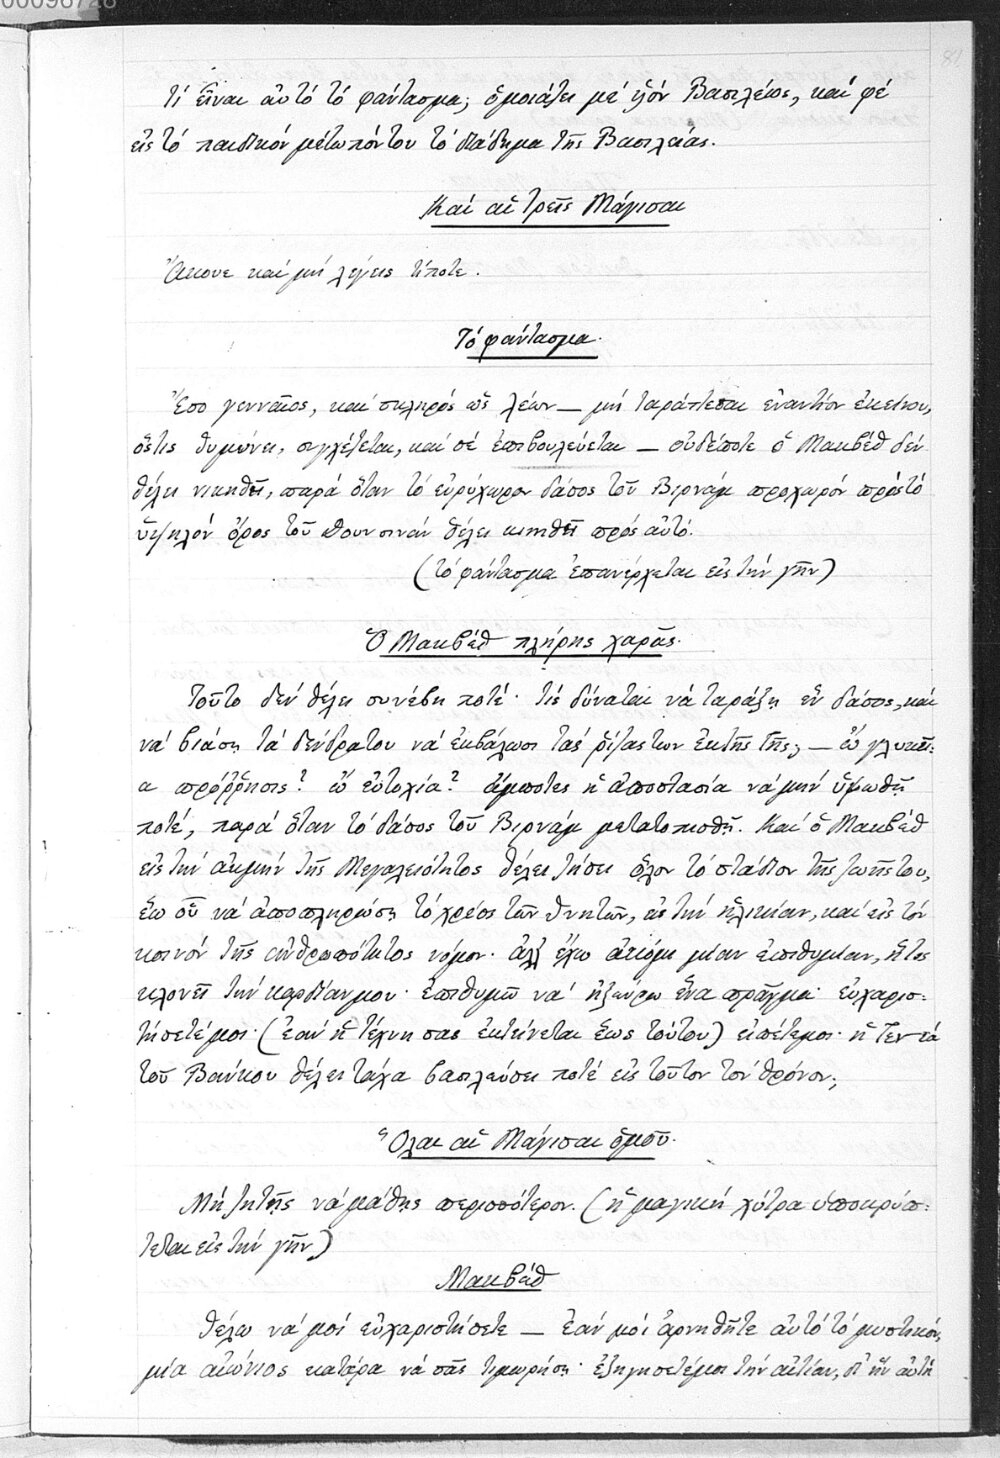 00096728
81
τί εἶναι αὐτό τό φάντασμα; ὁμοιάζει μέ υἱόν Βασιλέως, καί φέ
εἰς τό παιδικόν μέτωπόν του τό διάδημα τῆς Βασιλείας.
Καί αἱ τρεῖς Μάγισαι
Ἄκουε καί μή λέγεις τίποτε.
Τό φάντασμα.
Ἔσο γενναῖος, καί σκληρός ὡς λέων — μή ταράττεσαι ἐναντίον ἐκείνου,
ὅστις θυμώνει, συγχέζεται, καί σέ ἐπιβουλεύεται — οὐδέποτε ὁ Μακβέθ δέν
θέλει νικηθεῖ, παρά ὅταν τό εὐρύχωρον δάσος τοῦ Βιρνάμ προχωρόν πρός τό
ὑψηλόν ὄρος τοῦ Δουνσινάν θέλει κινηθεῖ πρός αὐτό.
(τό φάντασμα ἐπανέρχεται εἰς τήν γῆν)
Ὁ Μακβέθ πλήρης χαρᾶς.
Τοῦτο δέν θέλει συνέβη ποτέ· τίς δύναται νά ταράξῃ ἕν δάσος, καί
νά βιάσῃ τά δένδρα του νά ἐκβάλωσι τάς ῥίζας των ἐκ τῆς γῆς; — ὤ γλυκεῖ=
α πρόῤῥησις! ὤ εὐτυχία! ἄμποτες ἡ ἀποστασία νά μήν ὑψωθῇ
ποτέ, παρά ὅταν τό δάσος τοῦ Βιρνάμ μετατοπισθῇ. Καί ὁ Μακβέθ
εἰς τήν ἀκμήν τῆς Μεγαλειότητος θέλει ζήσει ὅλον τό στάδιον τῆς ζωῆς του,
ἕως οὗ νά ἀποπληρώσῃ τό χρέος τῶν θνητῶν, εἰς τήν ἡλικίαν, καί εἰς τόν
κοινόν τῆς ἀνθρωπότητος νόμον· ἀλλ' ἔχω ἀκόμη μίαν ἐπιθυμίαν, ἥτις
κλονεῖ τήν καρδίαν μου· ἐπιθυμῶ νά ἠξεύρω ἕνα πρᾶγμα· εὐχαρισ=
τήσετέ μοι· (ἐάν ἡ τέχνη σας ἐκτείνεται ἕως τούτου) εἰπέτε μοι· ἡ γεννεά
τοῦ Βάνκου θέλει τάχα βασιλεύσει ποτέ εἰς τοῦτον τόν θρόνον;
Ὅλαι αἱ Μάγισαι ὁμοῦ.
Μή ζητῇς νά μάθῃς περισσότερον. (ἡ μαγική χύτρα ὑποκρύπ=
τεται εἰς τήν γῆν)
Μακβέθ
Θέλω νά μοί εὐχαριστήσετε — ἐάν μοί ἀρνηθῆτε αὐτό τό μυστικόν,
μία αἰώνιος κατάρα νά σᾶς τιμωρήσῃ· ἐξηγήσετέ μοι τήν αἰτίαν, δι' ἥν αὐτή